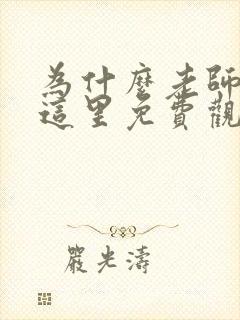 為什麼老師
這里免費觀
嚴光濤